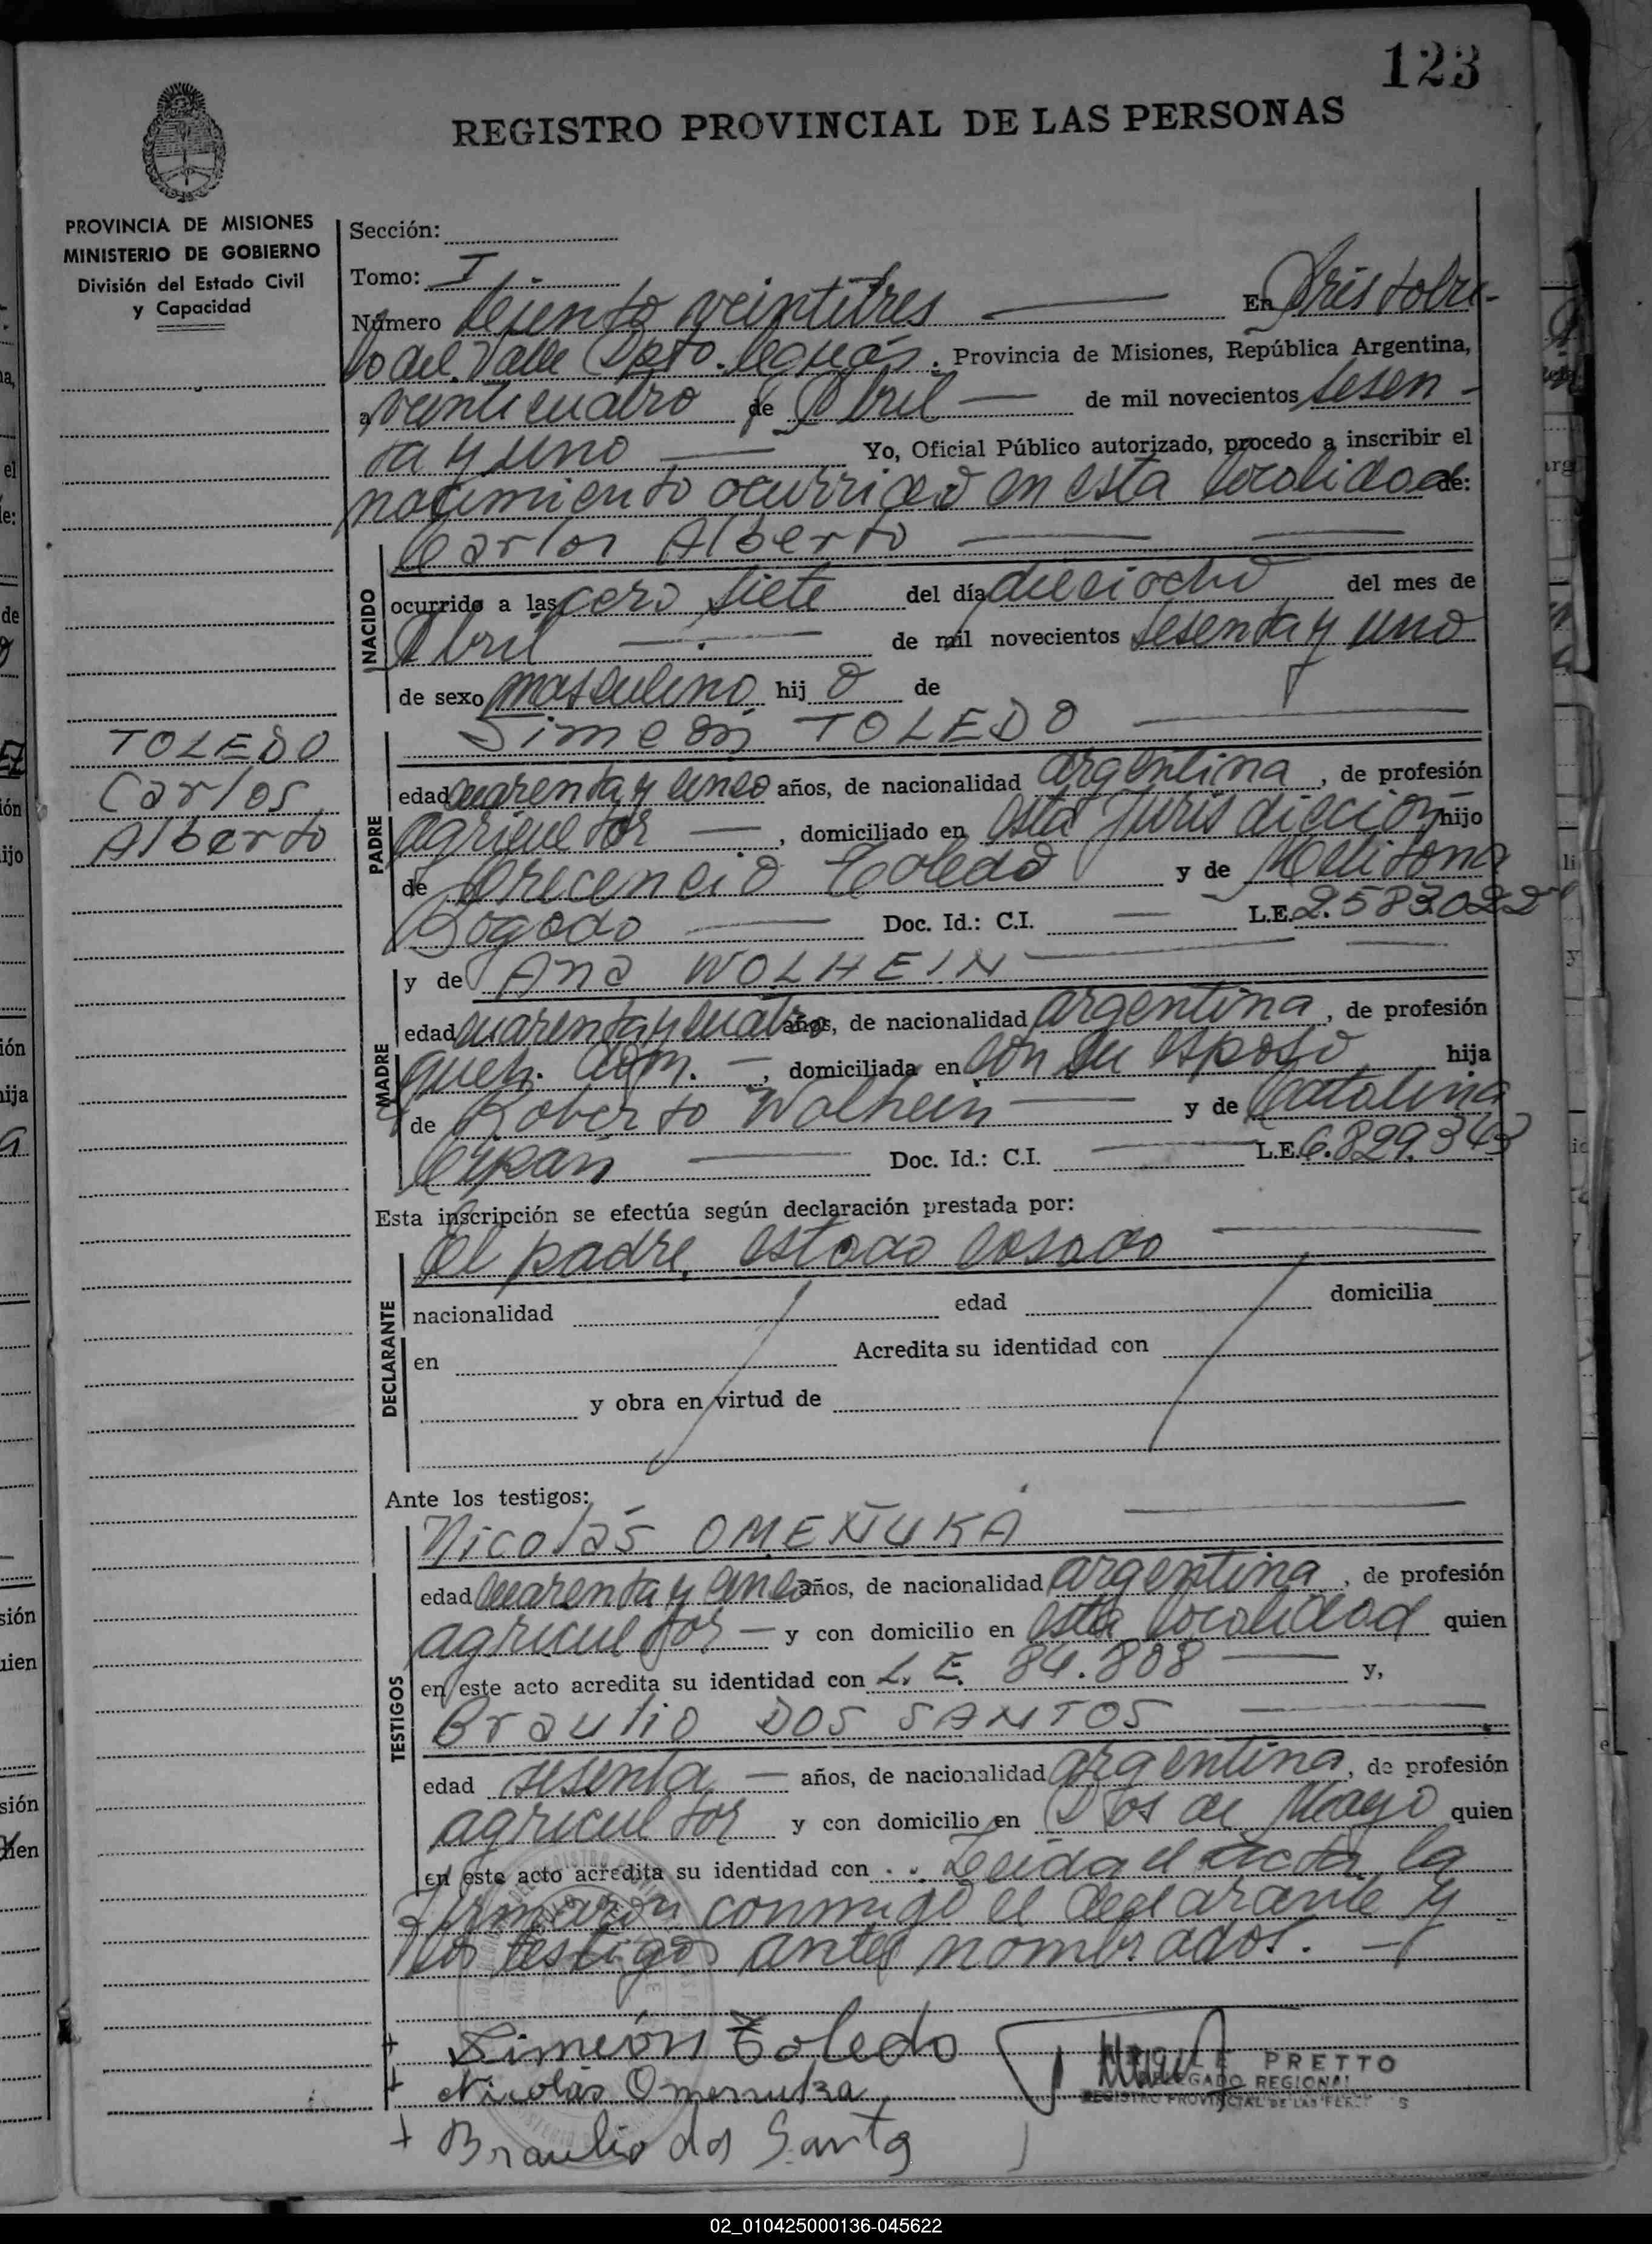 123
REGISTRO PROVINCIAL DE LAS PERSONAS
PROVINCIA DE MISIONES
MINISTERIO DE GOBIERNO
División del Estado Civil
y Capacidad
TOLEDO
Carlos
Alberto
Sección:
Tomo: I
Número Ciento veintitres En Aristobu-
lo del Valle Dpto. Cguás. Provincia de Misiones, República Argentina,
a veinticuatro de Abril de mil novecientos sesen-
ta y uno Yo, Oficial Público autorizado, procedo a inscribir el
nacimiento ocurrido en esta localidad de:
Carlos Alberto
NACIDO
ocurrido a las cero siete del día dieciocho del mes de
Abril de mil novecientos sesenta y uno
de sexo masculino hij o de
Simeón TOLEDO
PADRE
edad cuarenta y cinco años, de nacionalidad argentina, de profesión
agricultor, domiciliado en esta Jurisdicción hijo
de Crecencio Toledo y de Melitona
Bogado Doc. Id.: C.I. L.E. 2.583.022
MADRE
y de Ana WOLHEIN
edad cuarenta y cuatro años, de nacionalidad argentina, de profesión
queh. dom. -, domiciliada en con su esposo hija
de Roberto Wolhein y de Catalina
Doc. Id.: C.I. L.E. 6.829.343
Esta inscripción se efectúa según declaración prestada por:
el padre, estado casado
DECLARANTE
nacionalidad edad domicilia
en Acredita su identidad con
y obra en virtud de
Ante los testigos:
TESTIGOS
Nicolás OMEÑUKA
edad cuarenta y cinco años, de nacionalidad argentina, de profesión
agricultor - y con domicilio en esta localidad quien
en este acto acredita su identidad con L. E. 84.808 y,
Braulio DOS SANTOS
edad sesenta - años, de nacionalidad argentina, de profesión
agricultor y con domicilio en Dos de Mayo quien
en este acto acredita su identidad con . . Leida el acta, la
firmaron conmigo el declarante y
los testigos antes nombrados. -
+ Simeón Toledo
+ Nicolás Omenuka
+ Braulio dos Santo
PRETTO
DELEGADO REGIONAL
REGISTRO PROVINCIAL DE LAS PERS
02_010425000136-045622